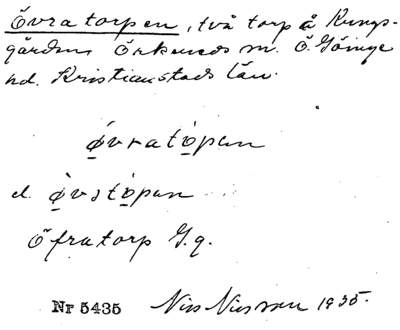 Övratorpen, två torp å Kungs-
gårdens Örkeneds sn. Ö. Göinge
hd. Kristianstads län.
ǫ́vratǫpan
el. ǫ̀vstǫpan
Öfratorp G.q.
Nr 5435 Nils Nilsson 1935.